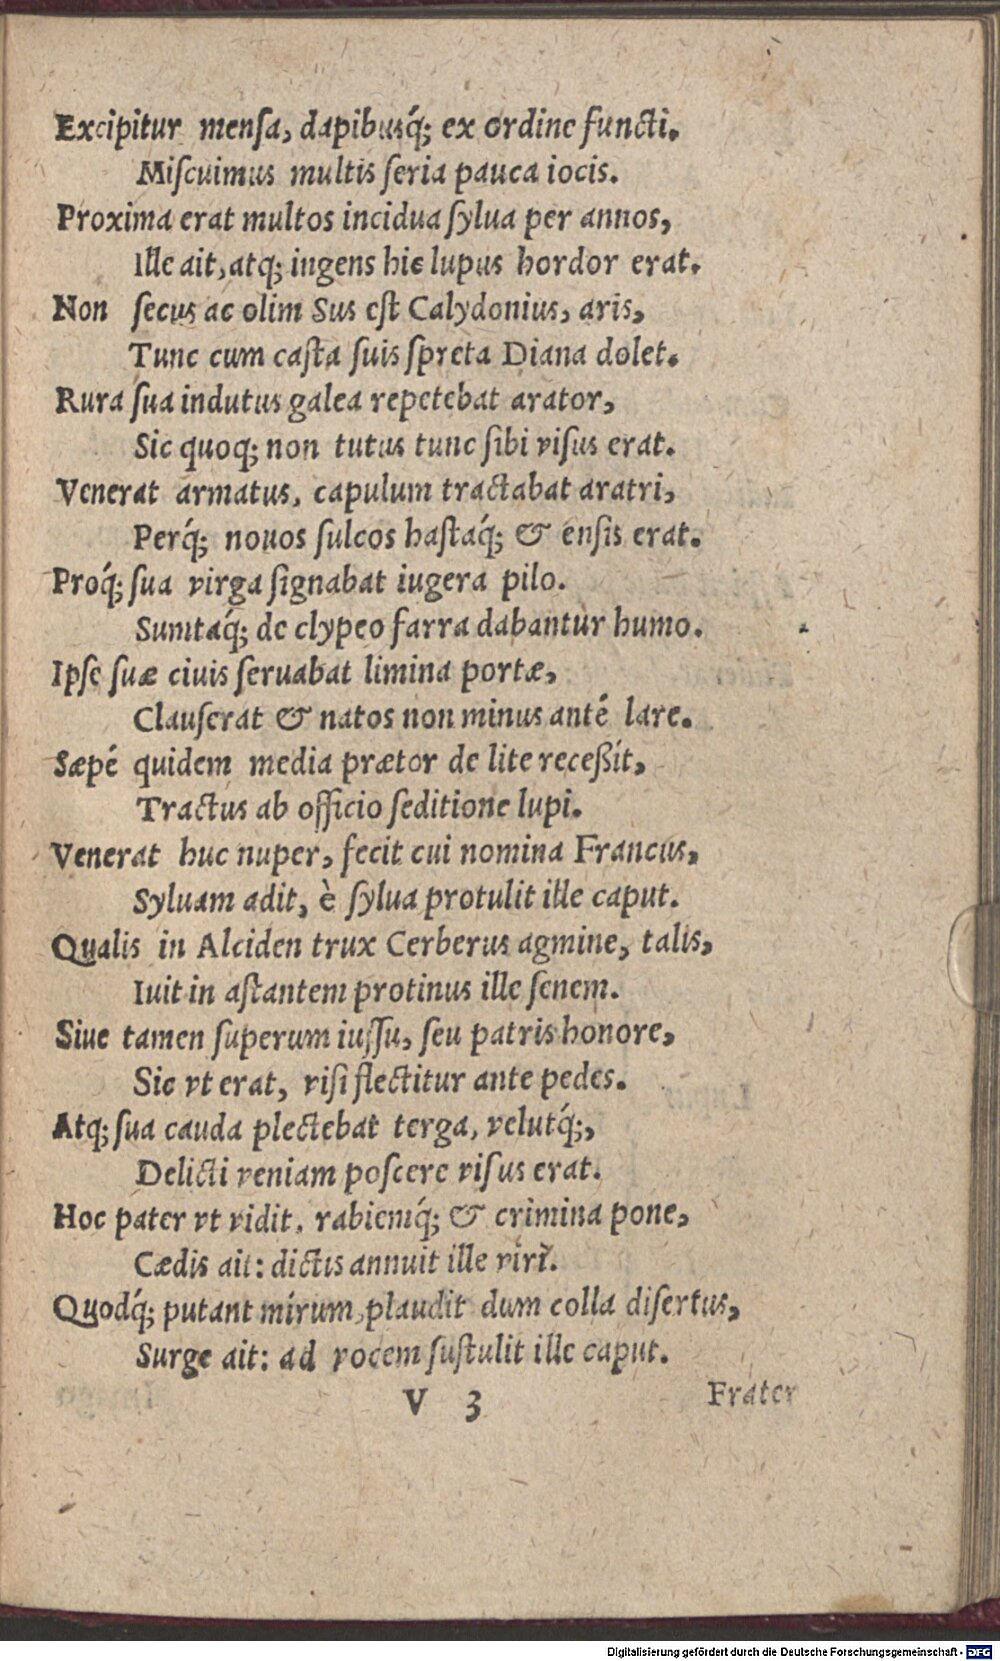 Excipitur mensa, dapibusq́; ex ordine functi.
Miſcuimus multis ſeria pauca iocis.
Proxima erat multos incidua ſylua per annos,
Ille ait, atq; ingens hic lupus hordor erat.
Non ſecus ac olim Sus eſt Calydonius, aris,
Tunc cum caſta ſuis ſpreta Diana dolet.
Rura ſua indutus galea repetebat arator,
Sic quoq; non tutus tunc ſibi viſus erat.
Venerat armatus, capulum tractabat aratri,
Perq́; nouos ſulcos haſtaq́; & ensis erat.
Proq́; ſua virga ſignabat iugera pilo.
Sumtaq́; de clypeo farra dabantur humo.
Ipſe ſuæ ciuis ſeruabat limina portæ,
Clauſerat & natos non minus anté lare.
Sæpé quidem media prætor de lite receßit,
Tractus ab officio ſeditione lupi.
Venerat huc nuper, fecit cui nomina Francus,
Syluam adit, è ſylua protulit ille caput.
Qualis in Alciden trux Cerberus agmine, talis,
Iuit in aſtantem protinus ille ſenem.
Siue tamen ſuperum iuſſu, ſeu patris honore,
Sic vt erat, viſi flectitur ante pedes.
Atq; ſua cauda plectebat terga, velutq́;,
Delicti veniam poſcere viſus erat.
Hoc pater vt vidit, rabiemq́; & crimina pone,
Cædis ait: dictis annuit ille viri.
Quodq́; putant mirum, plaudit dum colla diſertus,
Surge ait: ad vocem ſuſtulit ille caput.
V 3 Frater
Digitalisierung gefördert durch die Deutsche Forschungsgemeinschaft - DFG